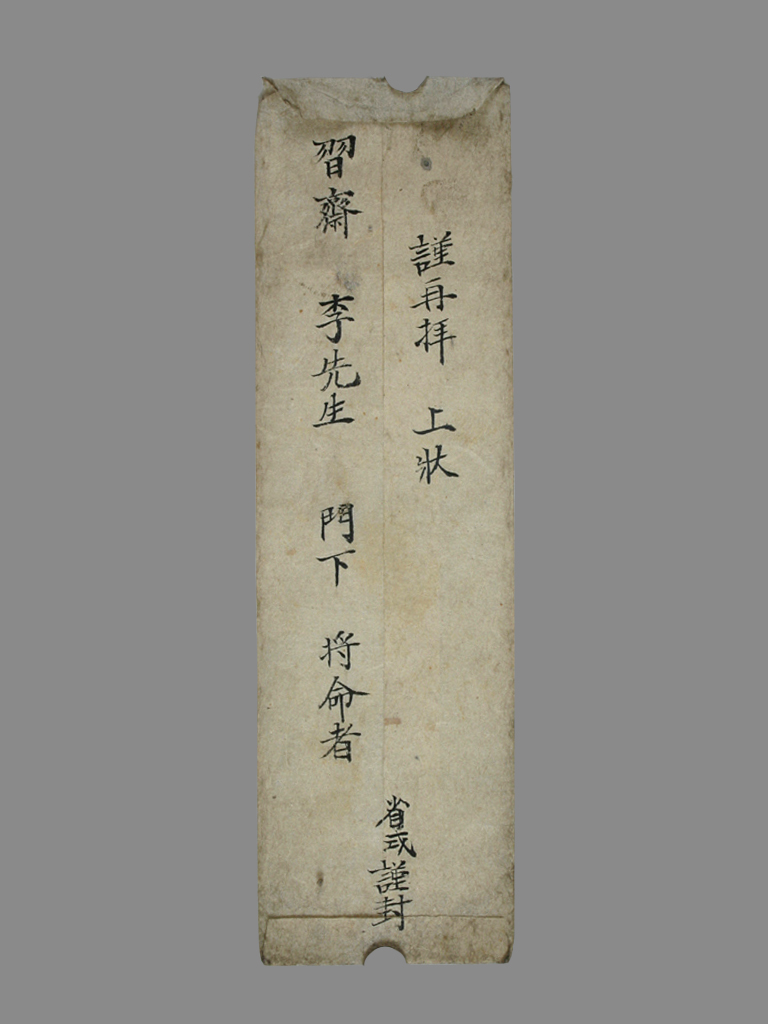 謹再拜 上狀
習齋 李先生 門下 将命者
省式謹封